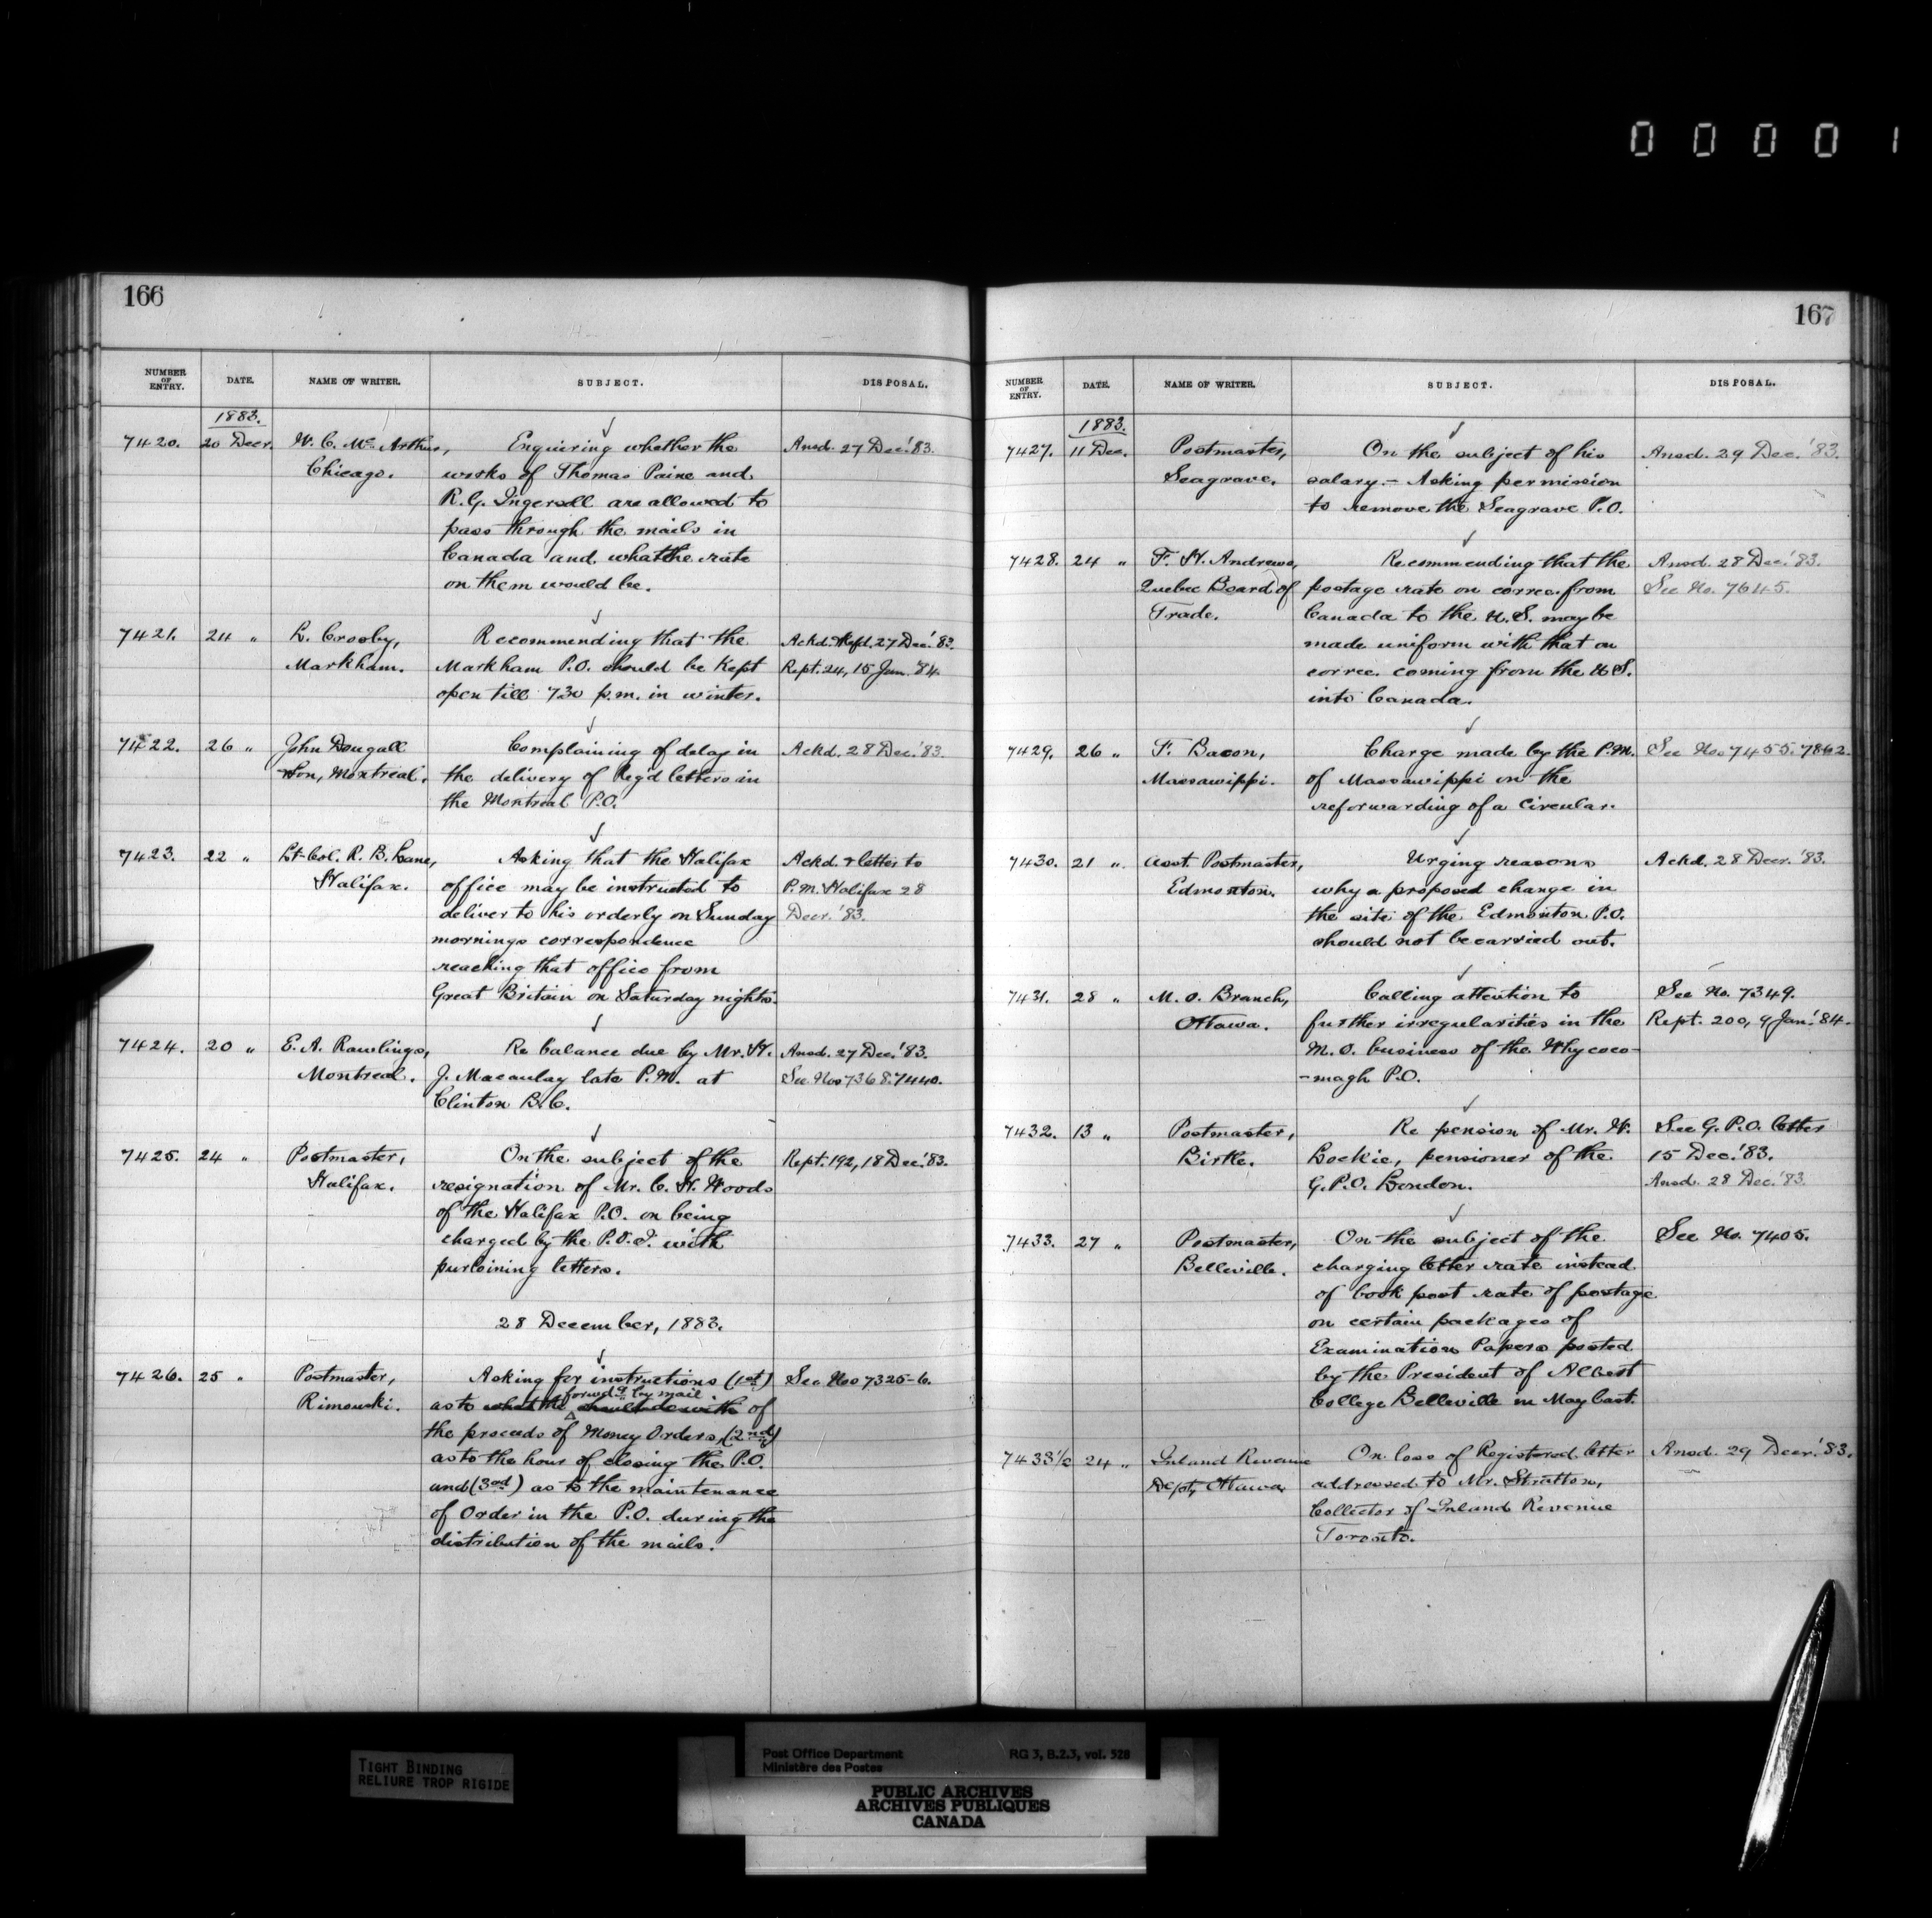 0 0 0 0 1
166
NUMBER OF ENTRY. DATE. NAME OF WRITER. SUBJECT. DISPOSAL.
1883.
7420. 20 Decr. W. C. McArthur, Enquiring whether the Ansd. 27 Dec. '83.
Chicago. works of Thomas Paine and
R. G. Ingersoll are allowed to
pass through the mails in
Canada and what the rate
on them would be.
7421. 24 " L. Crosby, Recommending that the Ackd. & Refd. 27 Dec. '83.
Markham. Markham P.O. should be kept Rept. 24, 15 Jan. '84.
open till 730 p.m. in winter.
7422. 26 " John Dougall Complaining of delay in Ackd. 28 Dec. '83.
& Son, Montreal. the delivery of Reg'd letters in
the Montreal P.O.
7423. 22 " Lt-Col. R. B. Lane, Asking that the Halifax Ackd. & letter to
Halifax. office may be instructed to P.M. Halifax 28
deliver to his orderly on Sunday Decr. '83.
mornings correspondence
reaching that office from
Great Britain on Saturday nights.
7424. 20 " E. A. Rawlings, Re balance due by Mr. H. Ansd. 27 Dec. '83.
Montreal. J. Macaulay late P.M. at See Nos 7368. 7440.
Clinton B.C.
7425. 24 " Postmaster, On the subject of the Rept. 192, 18 Dec. '83.
Halifax. resignation of Mr. C. H. Woods
of the Halifax P.O. on being
charged by the P.O.I. with
purloining letters.
28 December, 1883.
7426. 25 " Postmaster, Asking for instructions (1st) See Nos 7325-6.
Rimouski. as to what the forwdg by mail of
the proceeds of Money Orders, (2nd)
as to the hour of closing the P.O.
and (3rd) as to the maintenance
of Order in the P.O. during the
distribution of the mails.
167
NUMBER OF ENTRY. DATE. NAME OF WRITER. SUBJECT. DISPOSAL.
1883.
7427. 11 Dec. Postmaster, On the subject of his Ansd. 29 Dec. '83.
Seagrave. salary. – Asking permission
to remove the Seagrave P.O.
7428. 24 " F. H. Andrews, Recommending that the Ansd. 28 Dec. '83.
Quebec Board of postage rate on corres. from See No. 7645.
Trade. Canada to the U.S. may be
made uniform with that on
corres. coming from the U.S.
into Canada.
7429. 26 " F. Bacon, Charge made by the P.M. See Nos 7455. 7862.
Massawippi. of Massawippi on the
reforwarding of a circular.
7430. 21 " Asst. Postmaster, Urging reasons Ackd. 28 Decr. '83.
Edmonton. why a proposed change in
the site of the Edmonton P.O.
should not be carried out.
7431. 28 " M. O. Branch, Calling attention to See No. 7349.
Ottawa. further irregularities in the Rept. 200, 9 Jan. '84.
M.O. business of the Whycoco-
-magh P.O.
7432. 13 " Postmaster, Re pension of Mr. W. See G.P.O. letter
Birtle. Lockie, pensioner of the 15 Dec. '83.
G.P.O. London. Ansd. 28 Dec. '83.
7433. 27 " Postmaster, On the subject of the See No. 7405.
Belleville. charging letter rate instead
of book post rate of postage
on certain packages of
Examination Papers posted
by the President of Albert
College Belleville in May last.
7433½ 24 " Inland Revenue On loss of Registered letter Ansd. 29 Decr. '83.
Dept, Ottawa addressed to Mr. Stratton,
Collector of Inland Revenue
Toronto.
TIGHT BINDING
RELIURE TROP RIGIDE
Post Office Department RG 3, B.2.3, vol. 528
Ministère des Postes
PUBLIC ARCHIVES
ARCHIVES PUBLIQUES
CANADA